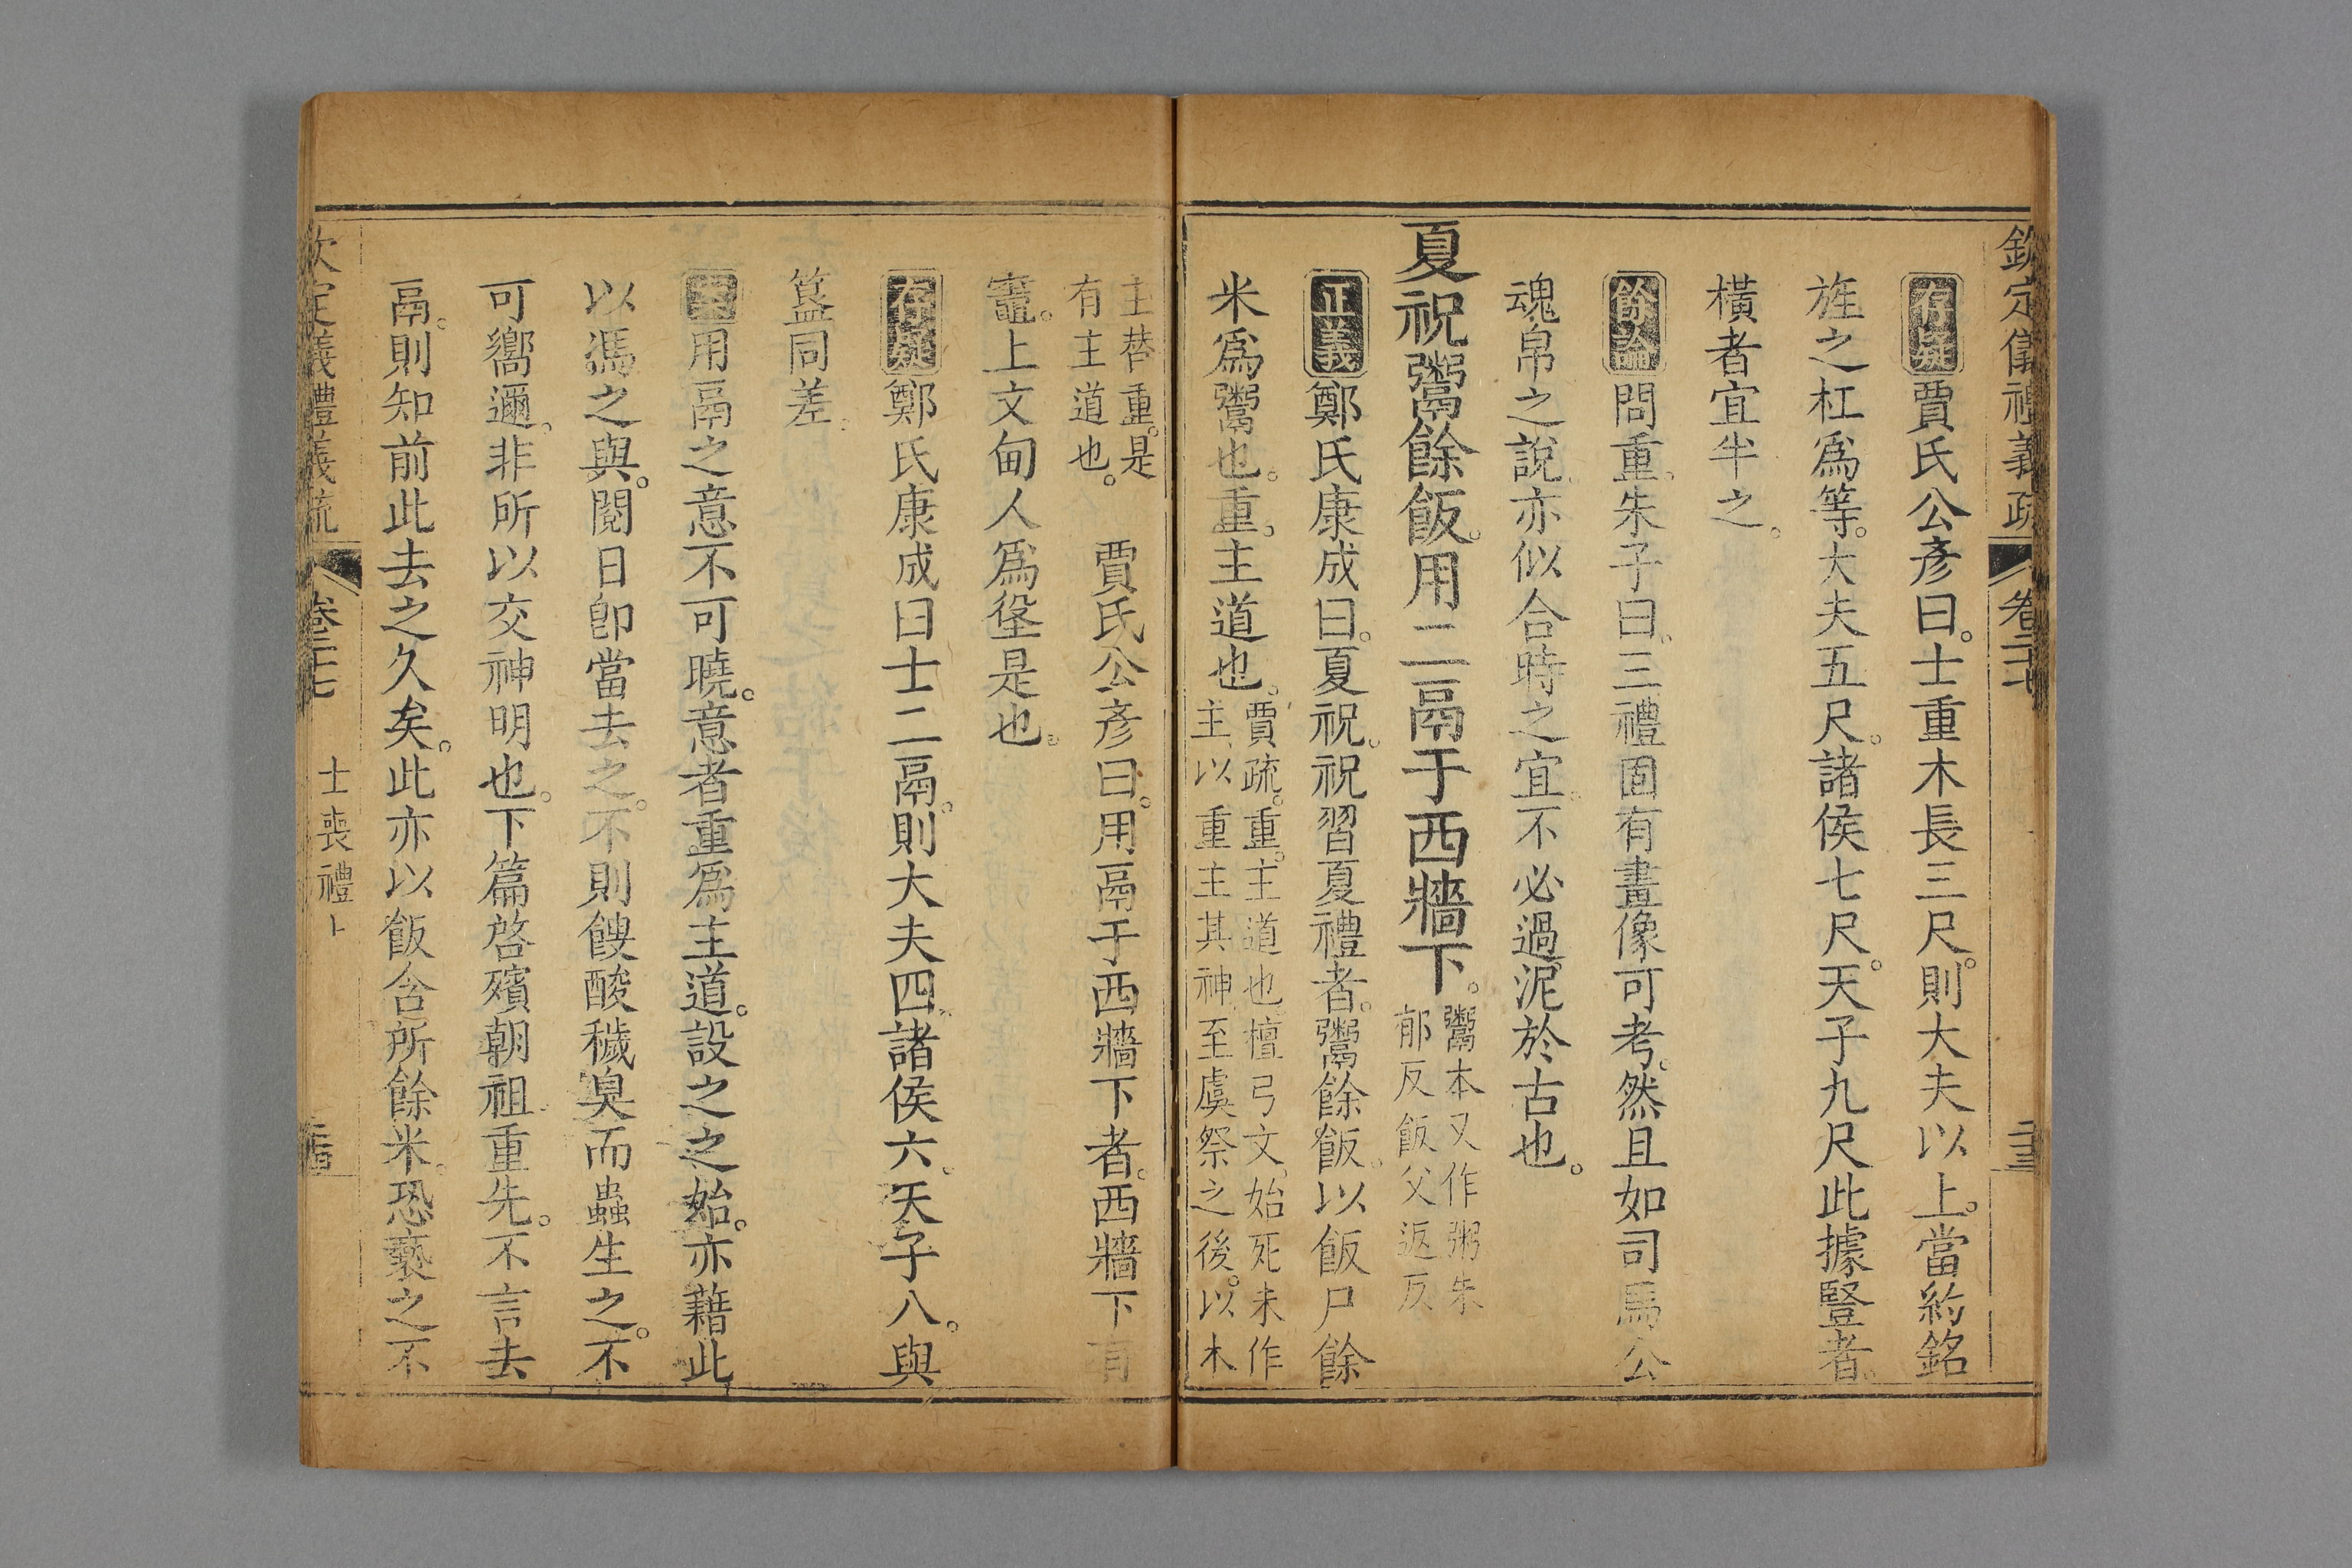 欽定儀禮義疏 卷二十七
存疑賈氏公彥曰。士重木長三尺。則大夫以上。當約銘
旌之杠爲等。大夫五尺。諸侯七尺。天子九尺此據豎者。
橫者宜半之。
餘論問重。朱子曰。三禮固有畫像可考。然且如司馬公
魂帛之說亦似合時之宜。不必過泥於古也。
夏祝鬻餘飯。用二鬲于西牆下。
鬻本又作粥朱
郁反飯父返反
正義鄭氏康成曰。夏祝。祝習夏禮者。鬻餘飯。以飯尸餘
米爲鬻也。重。主道也。
賈疏。重。主道也。檀弓文。始死未作
主。以重主其神。至虞祭之後。以木
主替重。是
有主道也。
賈氏公彥曰。用鬲于西牆下者。西牆下有
竈。上文甸人爲垼是也。
存疑鄭氏康成曰士二鬲。則大夫四。諸侯六。天子八。與
簋同差。
用鬲之意不可曉。意者重爲主道。設之之始。亦藉此
以馮之與。閱日卽當去之。不則餿酸穢臭而蟲生之。不
可嚮邇。非所以交神明也。下篇啓殯朝祖。重先。不言去
鬲。則知前此去之久矣。此亦以飯含所餘米。恐褻之不
欽定儀禮義疏 卷二十七 士喪禮上